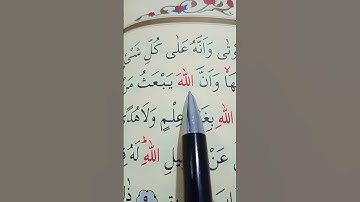 وْتٰى وَاَنَّهُ عَلٰى كُلِّ شَىْ
هَاۙ وَاَنَّ اللّٰهَ يَبْعَثُ مَنْ
اللّٰهِ بِغَ عِلْمٍ وَلَا هُدًى
عَنْ بِيلِ اللّٰهِۜ لَهُ فِ
٩ ذٰ